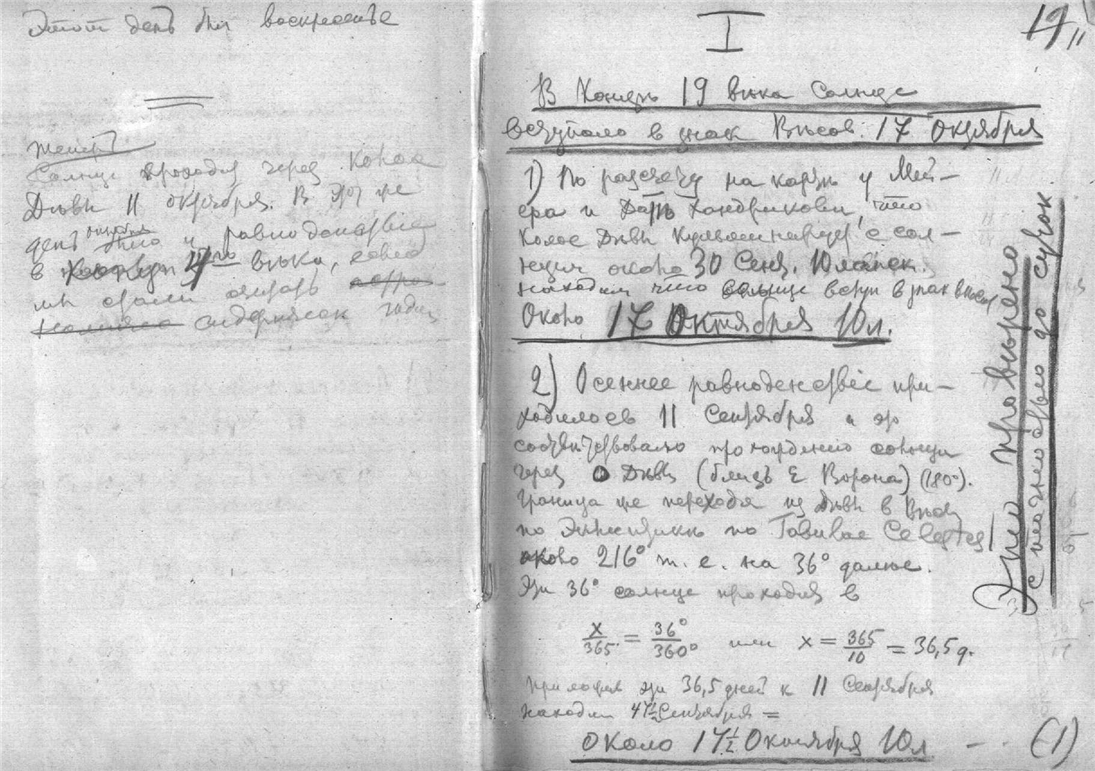 Этотъ день былъ воскресенье
Солнце проходитъ через Колос
Дѣвы 11 октября. В этотъ же
день было и равноденствіе
в 4 вѣка,
сидерическ годъ
I
19
В Конце 19 вѣка Солнце
вступало в знак Вѣсов: 17 Октября
1) По разсчету на картѣ у Мей-
ера и Хандрикова, что
Колос Дѣвы с сол-
нцем около 30 Сент. Юлianск.
находим что солнце вступ в знак вѣсов
Около 17 Октября Юл.
2) Осеннее равноденствіе при-
ходилось 11 Сентября и это
соответствовало прохожденію солнца
через 0 Дѣвы (близь ε Ворона) (180°).
Граница же перехода из Дѣвы в Вѣсы
по Эклиптикѣ по
около 216° т. е. на 36° далѣе.
Эти 36° солнце проходит в
x/365 = 36°/360° или x = 365/10 = 36,5 д.
Прилагая эти 36,5 дней к 11 Сентября
находим 47½ Сентября =
около 17½ Октября Юл — (1)
Это провѣрено
с точностью до суток